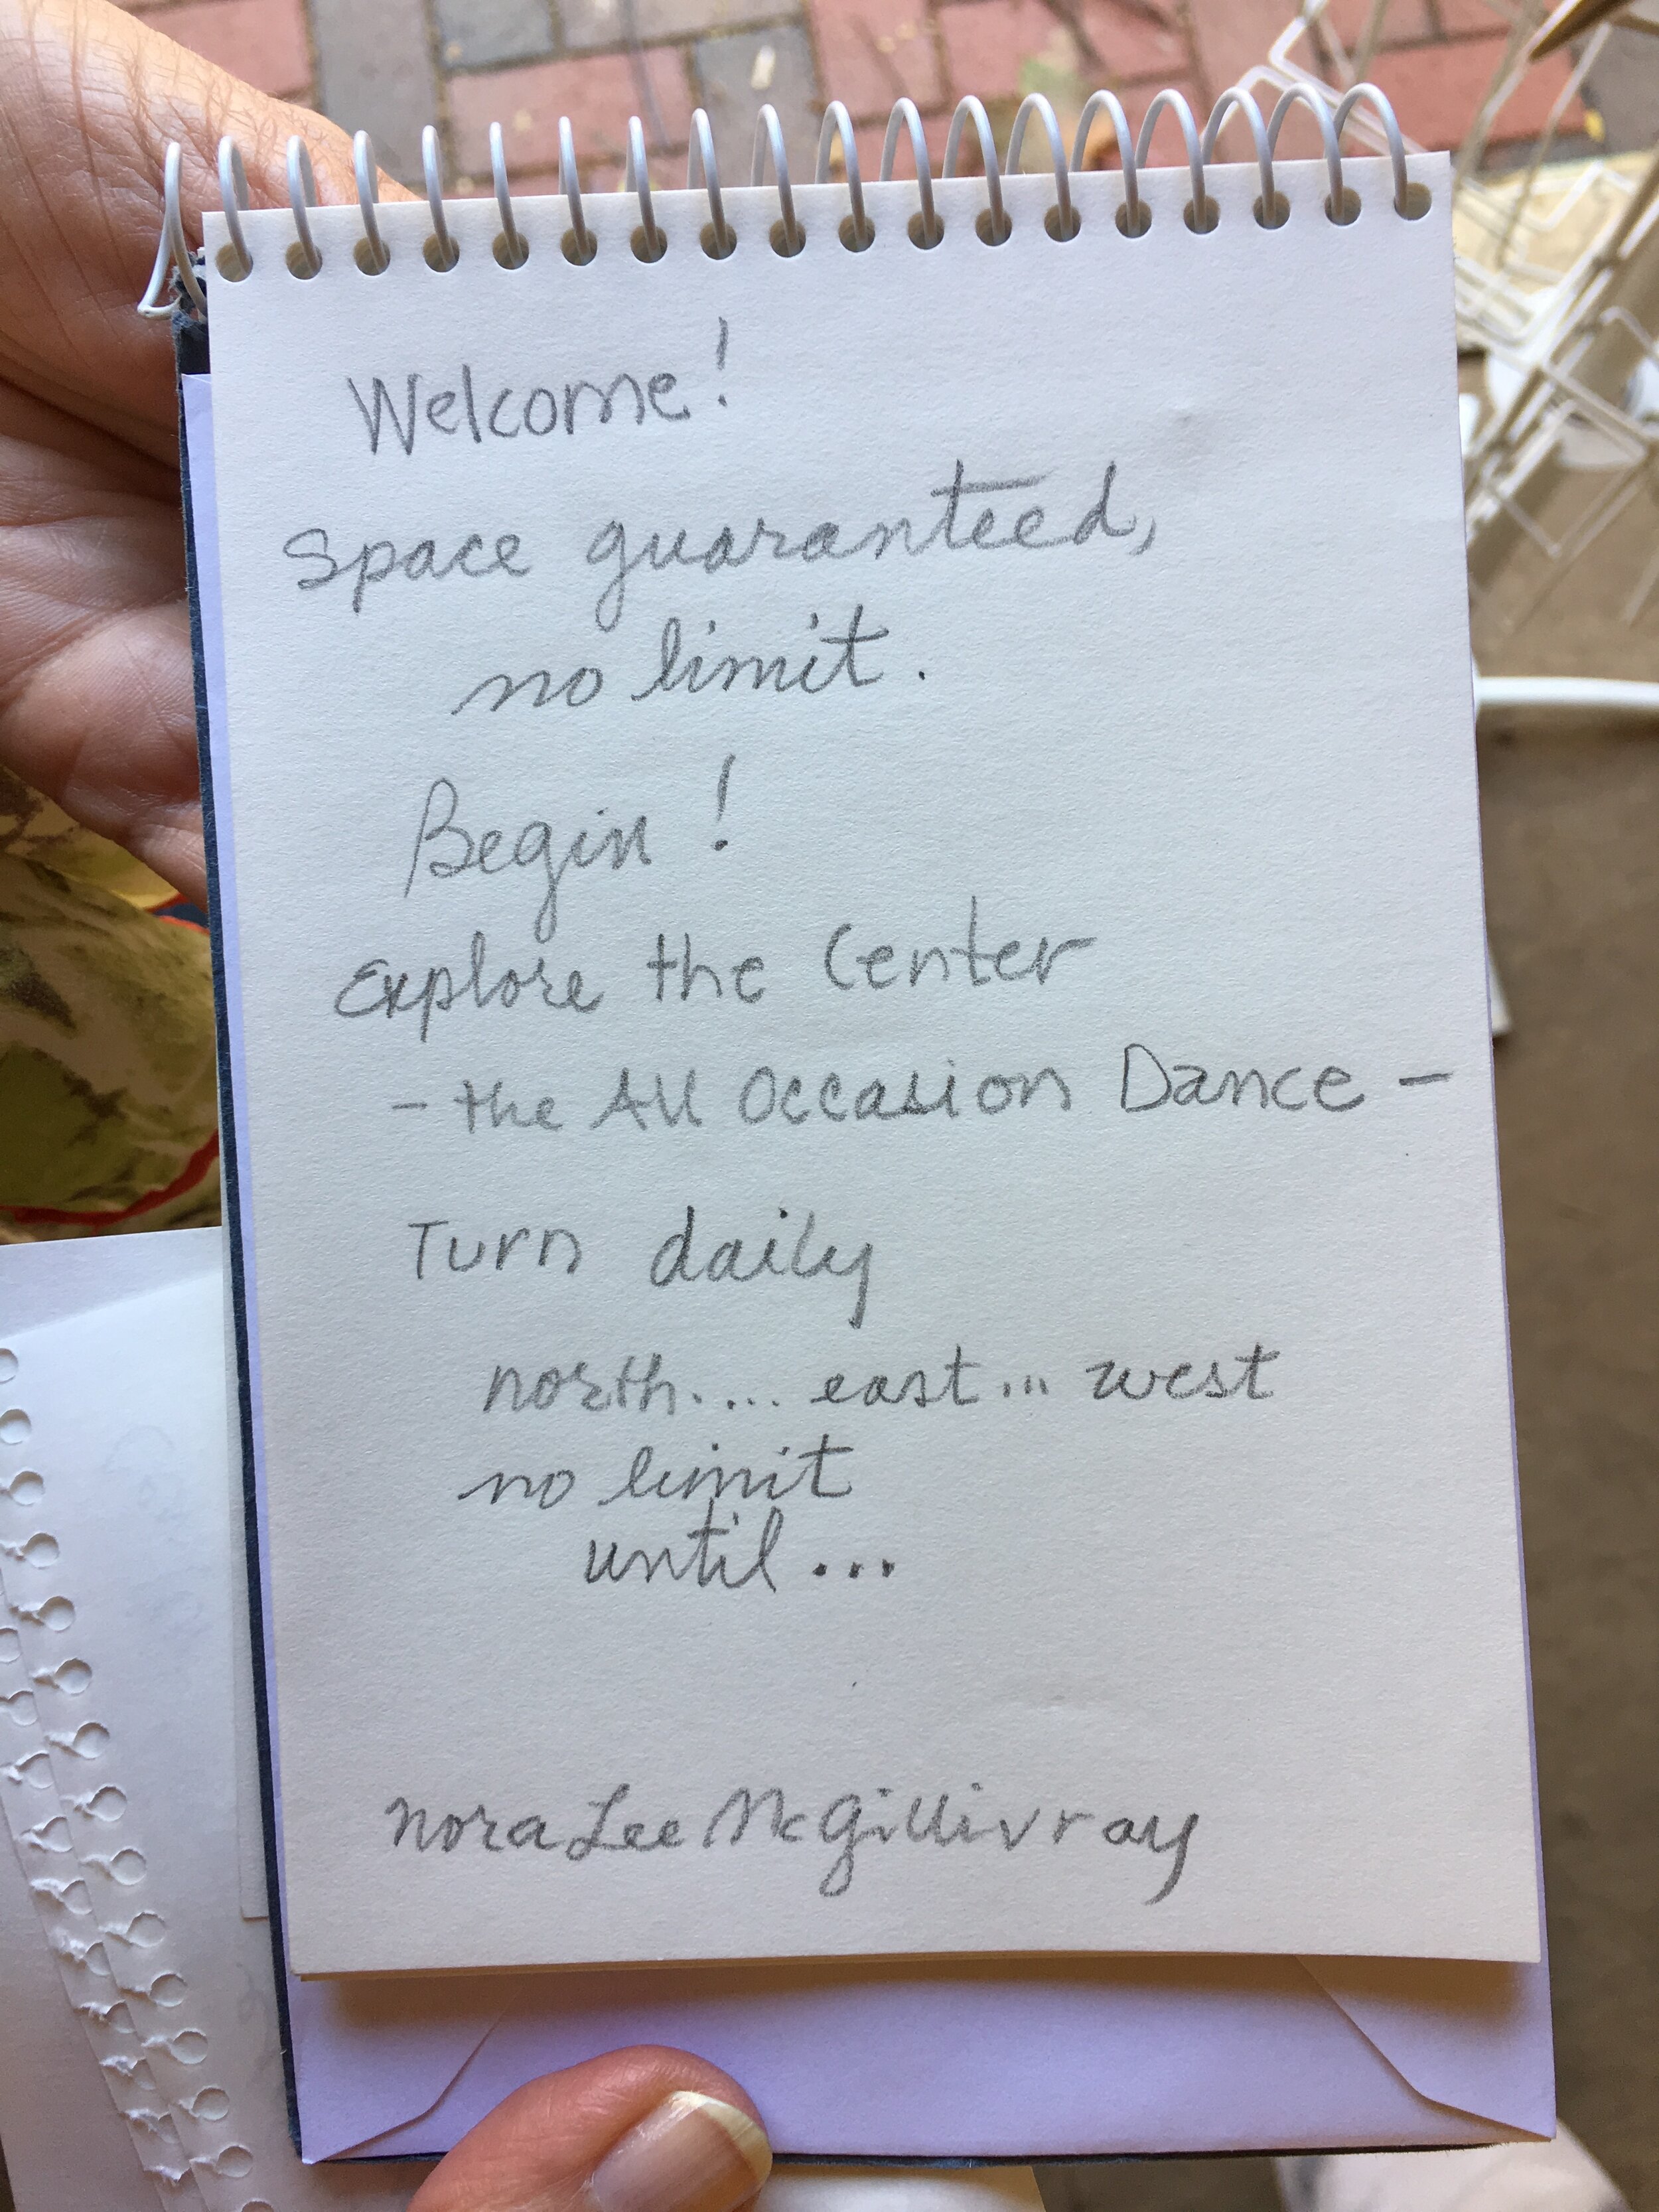 Welcome!
Space guaranteed,
no limit.
Begin!
Explore the Center
- the All Occasion Dance -
Turn daily
north.... east... west
no limit
until...
Nora Lee McGillivray